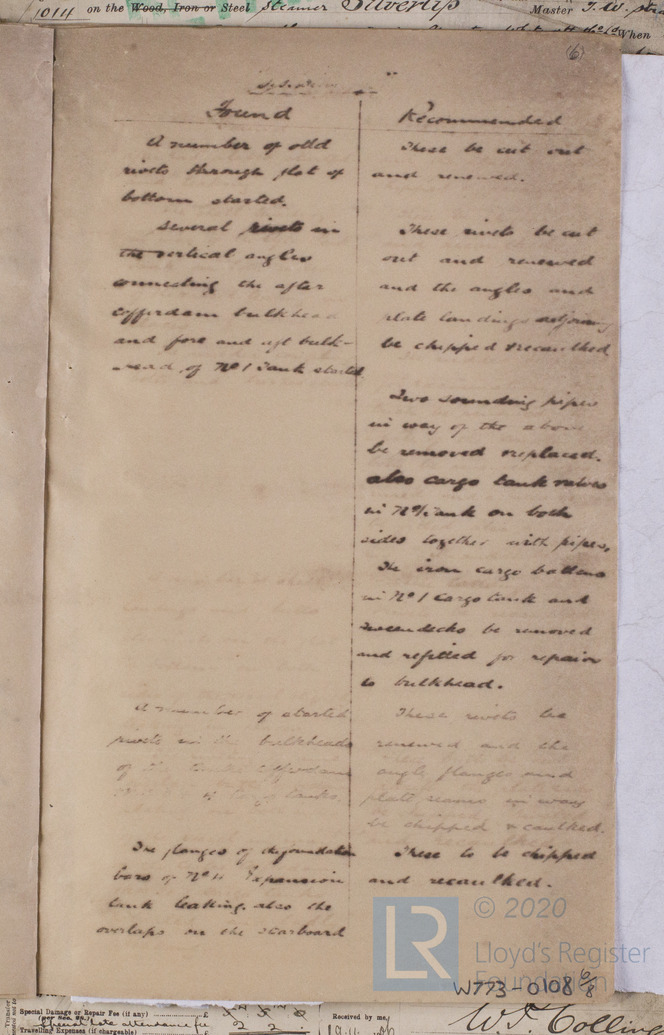 1014 on the Wood, Iron or Steel Steamer Silverlip Master J. W.
When
(6)
Found
Recommended
A number of old
rivets through flat of
bottom started.
These be cut out
and renewed.
Several rivets in
the vertical angles
connecting the after
cofferdam bulkhead
and fore and aft bulk-
head of No 1 Tank started
These rivets be cut
out and renewed
and the angles and
plate landings adjoining
be chipped & recaulked
Two sounding pipes
in way of the above
be removed & replaced.
also cargo tank valves
in No 1 Tank on both
sides together with pipes,
The iron cargo battens
in No 1 Cargo tank and
tweendecks be removed
and refitted for repairs
to bulkhead.
A number of started
rivets in the bulkheads
of the cofferdam
tanks.
These rivets be
renewed and the
angle flanges and
plate seams in way
be chipped & caulked.
The flanges of foundation
bars of No 11 Expansion
tank leaking, also the
overlaps on the starboard
These to be chipped
and recaulked.
© 2020
LR
Lloyd's Register
Foundation
W773-0108 6/8
Special Damage or Repair Fee (if any) £
Travelling Expenses (if chargeable) £
Received by me,